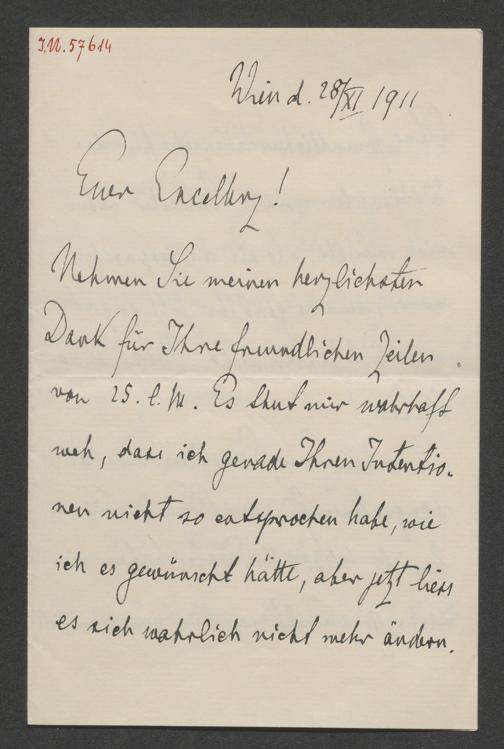 I.N. 57614
Wien d. 28/XI 1911
Euer Excellenz!
Nehmen Sie meinen herzlichsten
Dank für Ihre freundlichen Zeilen
von 25. l. M. Es thut mir wahrhaft
weh, dass ich gerade Ihren Intentio-
nen nicht so entsprochen habe, wie
ich es gewünscht hätte, aber jetzt liess
es sich wahrlich nicht mehr ändern.